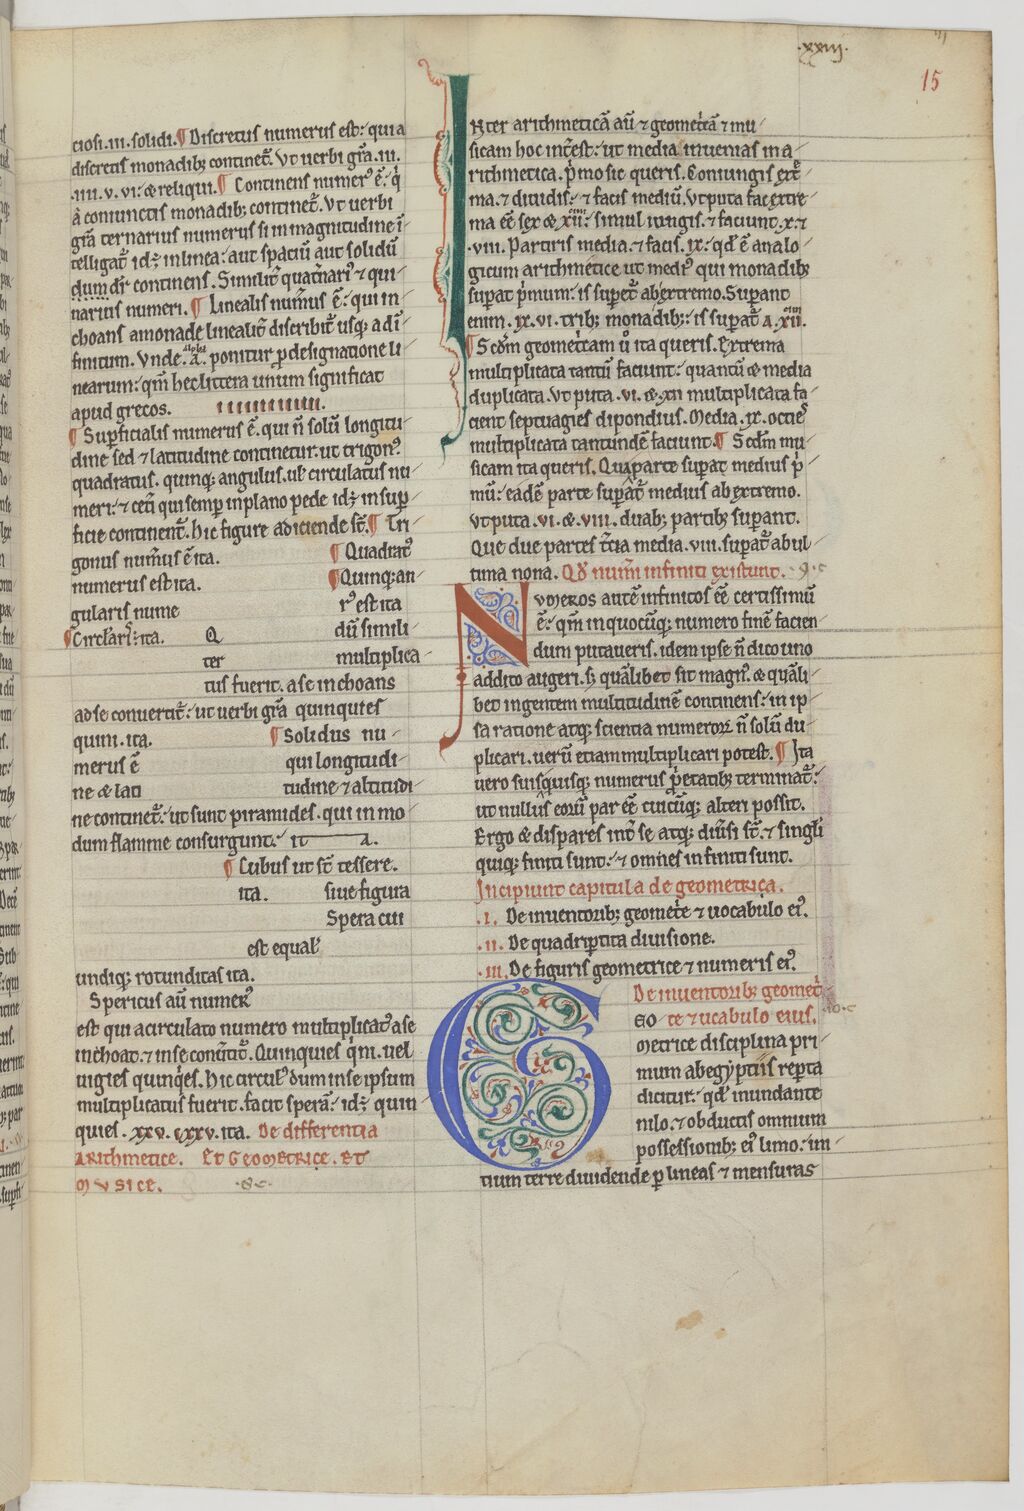 .xxiiij.
15
ciosi .iii. solidi. ¶ Discretus numerus est: qui a
discretis monadib; continet̃. Vt uerbi gr̃a .iii.
.iiii. v. vi. & reliqui. ¶ Continens numer᷒ ẽ: q̇
à coniunctis monadib; continet̃. Vt uerbi
gr̃a ternarius numerus si in magnitudine ĩ
telligat̃ id; in linea: aut spaciũ aut solidũ
dum dr̃ continens. Similit̃ quat̃nari᷒ ⁊ qui-
narius numeri. ¶ Linealis num̃us ẽ: qui in-
choans a monade linealit̃ discribit̃ usq; ad ĩ
finitum. Vnde .A. ponitur p̱ designatione li-
nearum: qm̃ hec littera unum significat
apud grecos. ıııııııııı.
¶ Sup̱ficialis numerus ẽ. qui ñ solũ longitu-
dine sed ⁊ latitudine continetur. ut trigon᷒.
quadratus. quinq; angulus. ul̃ circulatus nu-
meri: ⁊ cet̃i qui semper in plano pede id; in sup̱-
ficie continent̃. hic figure adiciende st̃. ¶ Tri-
gonus num̃us ẽ ita. ¶ Quadrat᷒
numerus est ita. ¶ Quinq; an-
gularis nume r᷒ est ita
¶ Circl̃ari᷒: ita. Q dũ simili
ter multiplica-
tus fuerit. a se inchoans
ad se conuertit̃: ut uerbi gr̃a quinquies
quini. ita. ¶ Solidus nu-
merus ẽ qui longitudi
ne & lati tudine & altitudi-
ne continet̃: ut sunt piramides. qui in mo-
dum flamme consurgunt. it a.
¶ Cubus ut st̃ tessere.
ita. siue figura
Spera cui
est equal᷒
undiq; rotunditas ita.
Spericus aũ numer᷒
est qui a circulato numero multiplicat᷒ a se
inchoat. ⁊ in se conũtit̃. Quinquies q̇m. uel
uigies quinq̃es. hic circul᷒ dum in se ipsum
multiplicatus fuerit. facit sperã: id; quin
quies .xxv. cxxv. ita. De differentia
arithmetice. Et Geometrice. Et
musice. .8c.
INter arithmeticã aũ ⁊ geomet̃ã ⁊ mu-
sicam hoc int̃est: ut media inuenias in a-
rithmetica. p̃mo sic queris. Coniungis ext̃-
ma. ⁊ diuidis: ⁊ facis mediũ. Vt puta fac extre-
ma eẽ sex & xii: simul iungis. ⁊ faciunt .x. ⁊
.viii. Partiris media. ⁊ facis .ix: qd̃ ẽ analo-
gicum arithmetice ut medi᷒ qui monadib;
sup̱at p̃mum: is sup̱et̃ ab extremo. Sup̱ant
enim .ix. vi. trib; monadib;: is sup̱at̃ a .xii.
¶ Scdm̃ geomet̃cam ů ita queris. Extrema
multiplicata tantũ faciunt: quantũ & media
duplicata. Vt puta .vi. & .xii multiplicata fa-
cient septuagies dipondius. Media .ix. octiẽs
multiplicata tantundẽ faciunt. ¶ Scdm̃ mu-
sicam ita queris. Qua parte sup̱at medius p̃-
mũ: eadẽ parte sup̱at̃ medius ab extremo.
Vt puta .vi. & .viii. duab; partib; sup̱ant.
Que due partes t̃cia media .viii. sup̱at̃ ab ul-
tima nona. Qd̃ num̃i infiniti existunt. .9.c
NVmeros autẽ infinitos eẽ certissimũ
ẽ: qm̃ in quocũq; numero finẽ facien
dum putaueris. idem ipse ñ dico uno
addito augeri. s; quãlibet sit magn᷒. & quãli-
bet ingentem multitudinẽ continens: in ip-
sa ratione atq; scientia numeror̃ ñ solũ du-
plicari. uerũ etiam multiplicari potest. ¶ Ita
uero suis quisq; numerus p̃etatib; terminat̃:
ut nullus eorũ par eẽ cuicũq; alteri possit.
Ergo & dispares int̃ se atq; diũsi st̃. ⁊ singl̃i
quiq; finiti sunt: ⁊ omnes infiniti sunt.
Incipiunt capitula de geometrica.
.I. De inuentorib; geomet̃e ⁊ uocabulo ei᷒.
.II. De quadrip̱tita diuisione.
.III. De figuris geometrice ⁊ numeris ei᷒.
De inuentorib; geomet̃
GEO- te ⁊ ucabulo eius. .10.c
metrice disciplina pri-
mum ab egyptiis rep̱ta
dicitur: qd̃ inundante
nilo. ⁊ obductis omnium
possessionib; ei᷒ limo. in-
tium terre diuidende p̱ lineas ⁊ mensuras